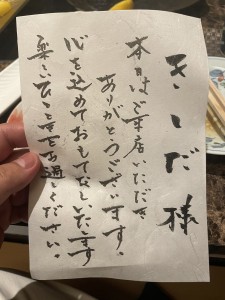 きしだ様
本日はご来店いただき
ありがとうございます。
心を込めておもてなしいたします
楽しいひとときをお過しください。